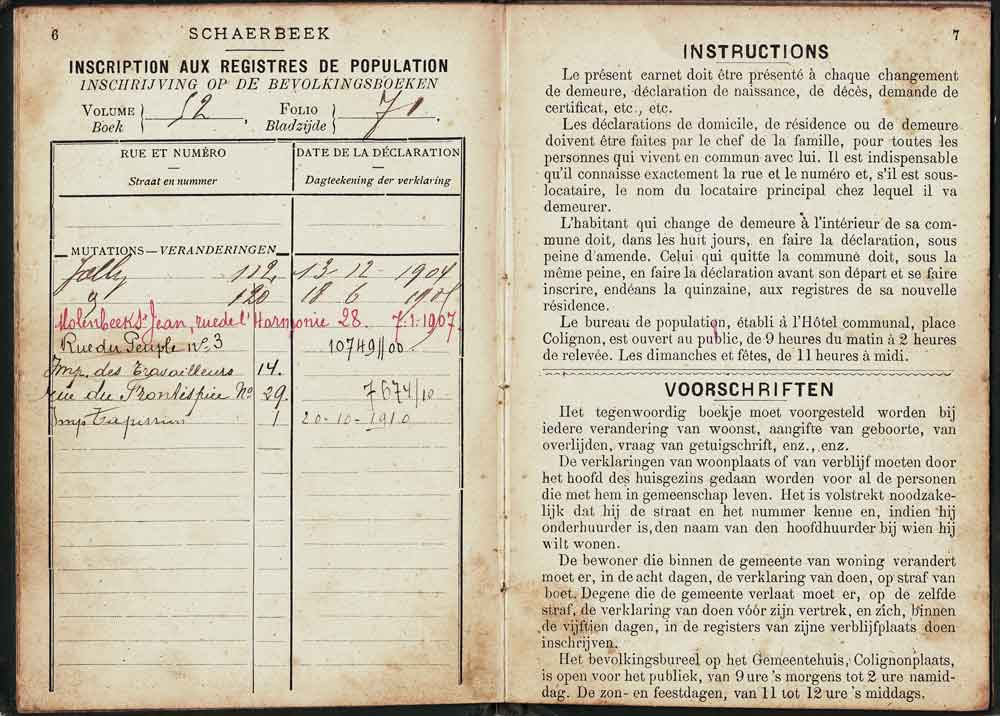 6
SCHAERBEEK
INSCRIPTION AUX REGISTRES DE POPULATION
INSCHRIJVING OP DE BEVOLKINGSBOEKEN
VOLUME Boek } 52. FOLIO Bladzijde } 71.
RUE ET NUMÉRO
Straat en nummer
DATE DE LA DÉCLARATION
Dagteekening der verklaring
MUTATIONS — VERANDERINGEN
Jolly 112. 13 - 12 - 1904
120 18 6
Molenbeek St Jean, rue de l'Harmonie 28. 7-1-1907.
Rue du Peuple No 3 10749/00
Imp. des Travailleurs 14.
rue du Frontispice No 29. 7674/10
Imp 1 20-10-1910
7
INSTRUCTIONS
Le présent carnet doit être présenté à chaque changement
de demeure, déclaration de naissance, de décès, demande de
certificat, etc., etc.
Les déclarations de domicile, de résidence ou de demeure
doivent être faites par le chef de la famille, pour toutes les
personnes qui vivent en commun avec lui. Il est indispensable
qu'il connaisse exactement la rue et le numéro et, s'il est sous-
locataire, le nom du locataire principal chez lequel il va
demeurer.
L'habitant qui change de demeure à l'intérieur de sa com-
mune doit, dans les huit jours, en faire la déclaration, sous
peine d'amende. Celui qui quitte la commune doit, sous la
même peine, en faire la déclaration avant son départ et se faire
inscrire, endéans la quinzaine, aux registres de sa nouvelle
résidence.
Le bureau de population, établi à l'Hôtel communal, place
Colignon, est ouvert au public, de 9 heures du matin à 2 heures
de relevée. Les dimanches et fêtes, de 11 heures à midi.
VOORSCHRIFTEN
Het tegenwoordig boekje moet voorgesteld worden bij
iedere verandering van woonst, aangifte van geboorte, van
overlijden, vraag van getuigschrift, enz., enz.
De verklaringen van woonplaats of van verblijf moeten door
het hoofd des huisgezins gedaan worden voor al de personen
die met hem in gemeenschap leven. Het is volstrekt noodzake-
lijk dat hij de straat en het nummer kenne en, indien hij
onderhuurder is, den naam van den hoofdhuurder bij wien hij
wilt wonen.
De bewoner die binnen de gemeente van woning verandert
moet er, in de acht dagen, de verklaring van doen, op straf van
boet. Degene die de gemeente verlaat moet er, op de zelfde
straf, de verklaring van doen vóór zijn vertrek, en zich, binnen
de vijftien dagen, in de registers van zijne verblijfplaats doen
inschrijven.
Het bevolkingsbureel op het Gemeentehuis, Colignonplaats,
is open voor het publiek, van 9 ure 's morgens tot 2 ure namid-
dag. De zon- en feestdagen, van 11 tot 12 ure 's middags.